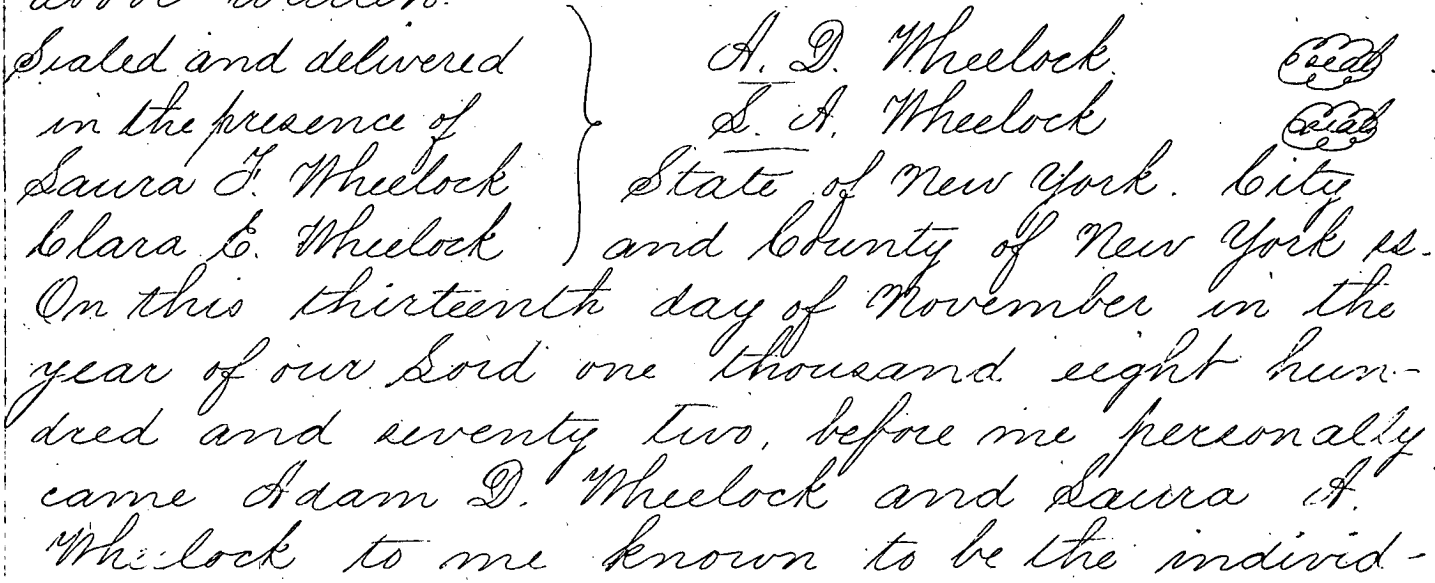 above written.
Sealed and delivered
in the presence of
Laura F. Wheelock
Clara E. Wheelock
A. D. Wheelock seal
L. A. Wheelock seal
State of New York. City
and County of New York ss.
On this thirteenth day of November in the
year of our Lord one thousand eight hun-
dred and seventy two, before me personally
came Adam D. Wheelock and Laura A.
Wheelock to me known to be the individ-